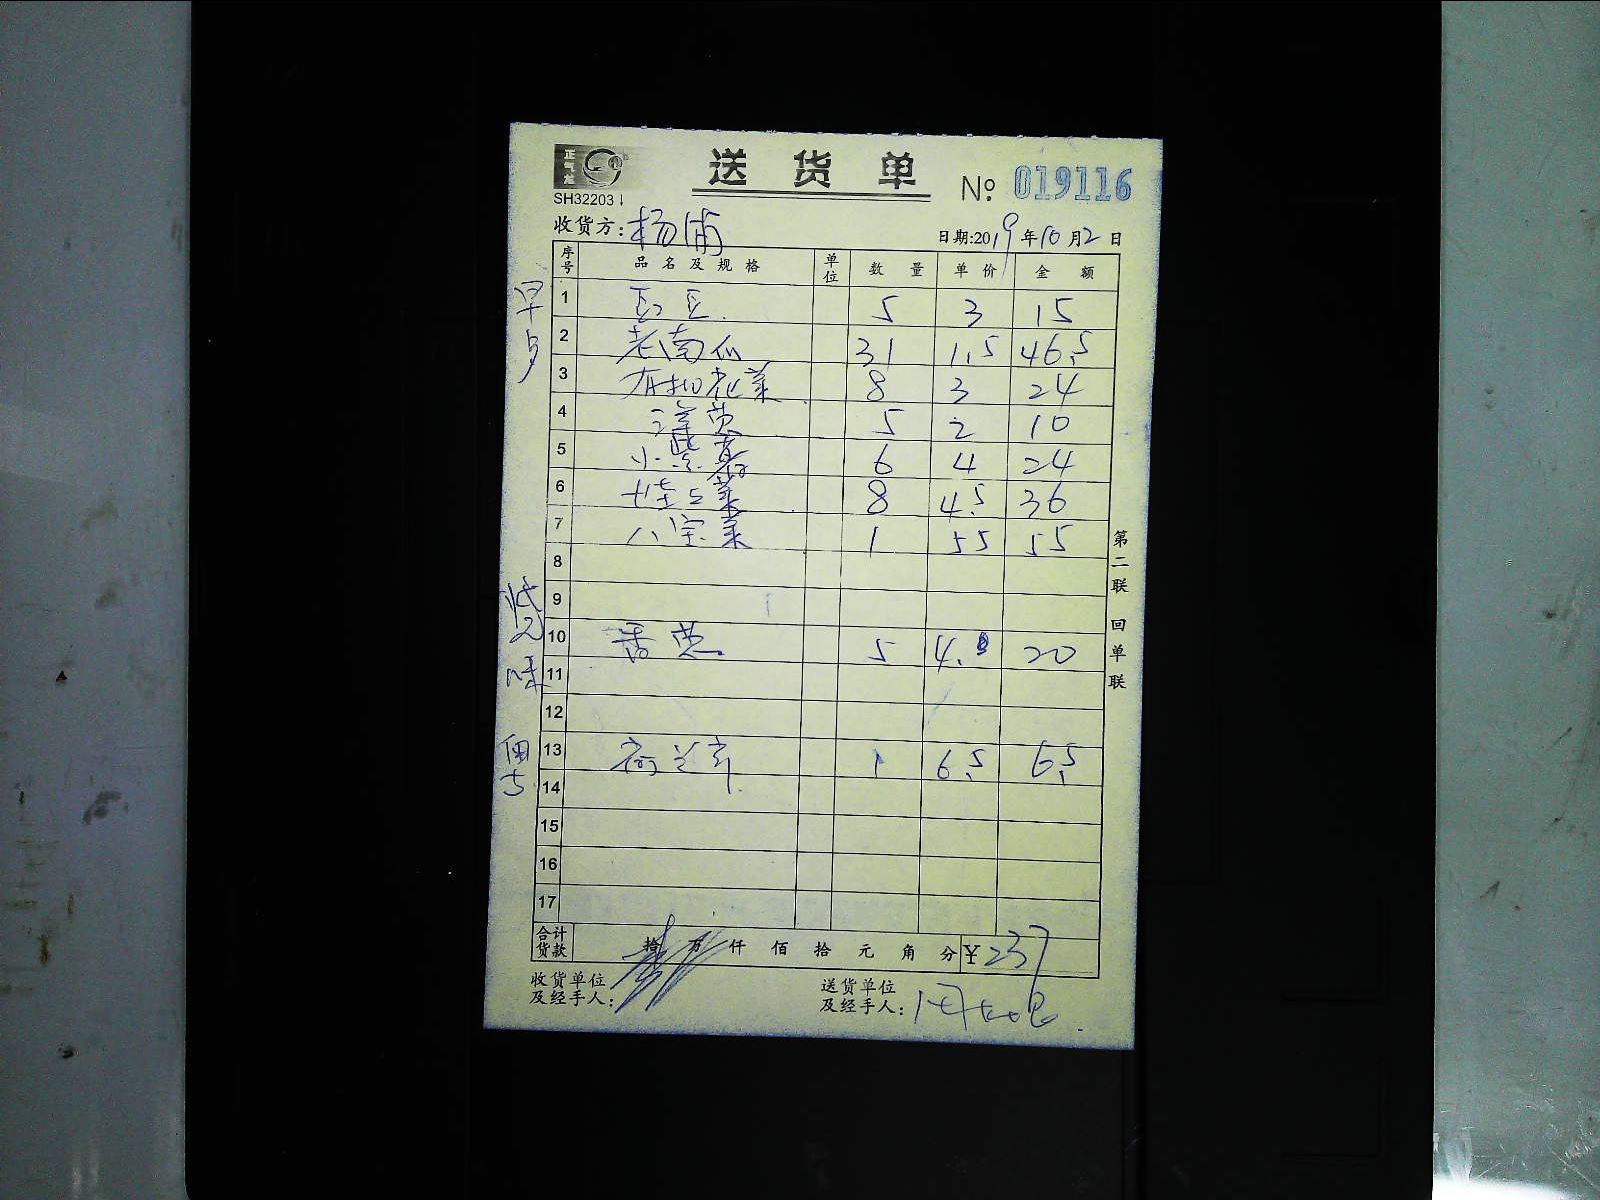 送货单
SH32203
No: 019116
收货方: 杨浦
日期:2019年10月2日
序号 品名及规格 单位 数量 单价 金额
早点
1 豇豆 5 3 15
2 老南瓜 31 1.5 46.5
3 有机花菜 8 3 24
4 洋葱 5 2 10
5 小紫薯 6 4 24
6 娃娃菜 8 4.5 36
7 八宝菜 1 55 55
8
9
10 香葱 5 4. 20
11
12
13 荷兰芹 1 6.5 6.5
14
15
16
17
合计货款 拾 万 仟 佰 拾 元 角 分 ¥237
收货单位及经手人:
送货单位及经手人:
第二联 回单联